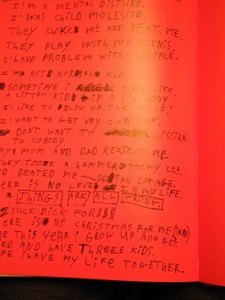 I'M A MENTAL DISTURB.
I WAS CHILD MOLESTED.
THEY ME AND BEAT ME
THEY PLAY WITH MY PENIS.
I HAVE PROBLEM WITH PEOPLE.
I'M NOT NORMAL KID.
SOMETIME I LIFE.
KID IN BODY
I LIKE TO BLOW UP THE
I WANT TO GET MY OWN WAY.
DONT WANT TO LISSTEN
TO NOBODY
MOM AND DAD REJECT ME.
THEY TOOK A HAMMER TO MY LEG
ND BEATED ME DAMAGE.
ERE IS NO LOVE IN MY LIFE
THINGS ARE ALL WRONG
SUCK DICK FOR $$$
ERE IS NO CHRISTMAS FOR ME
E THIS YEAR I GROW UP AND GET
ED AND HAVE THREEE KIDS.
PE I HAVE MY LIFE TOGETHER.